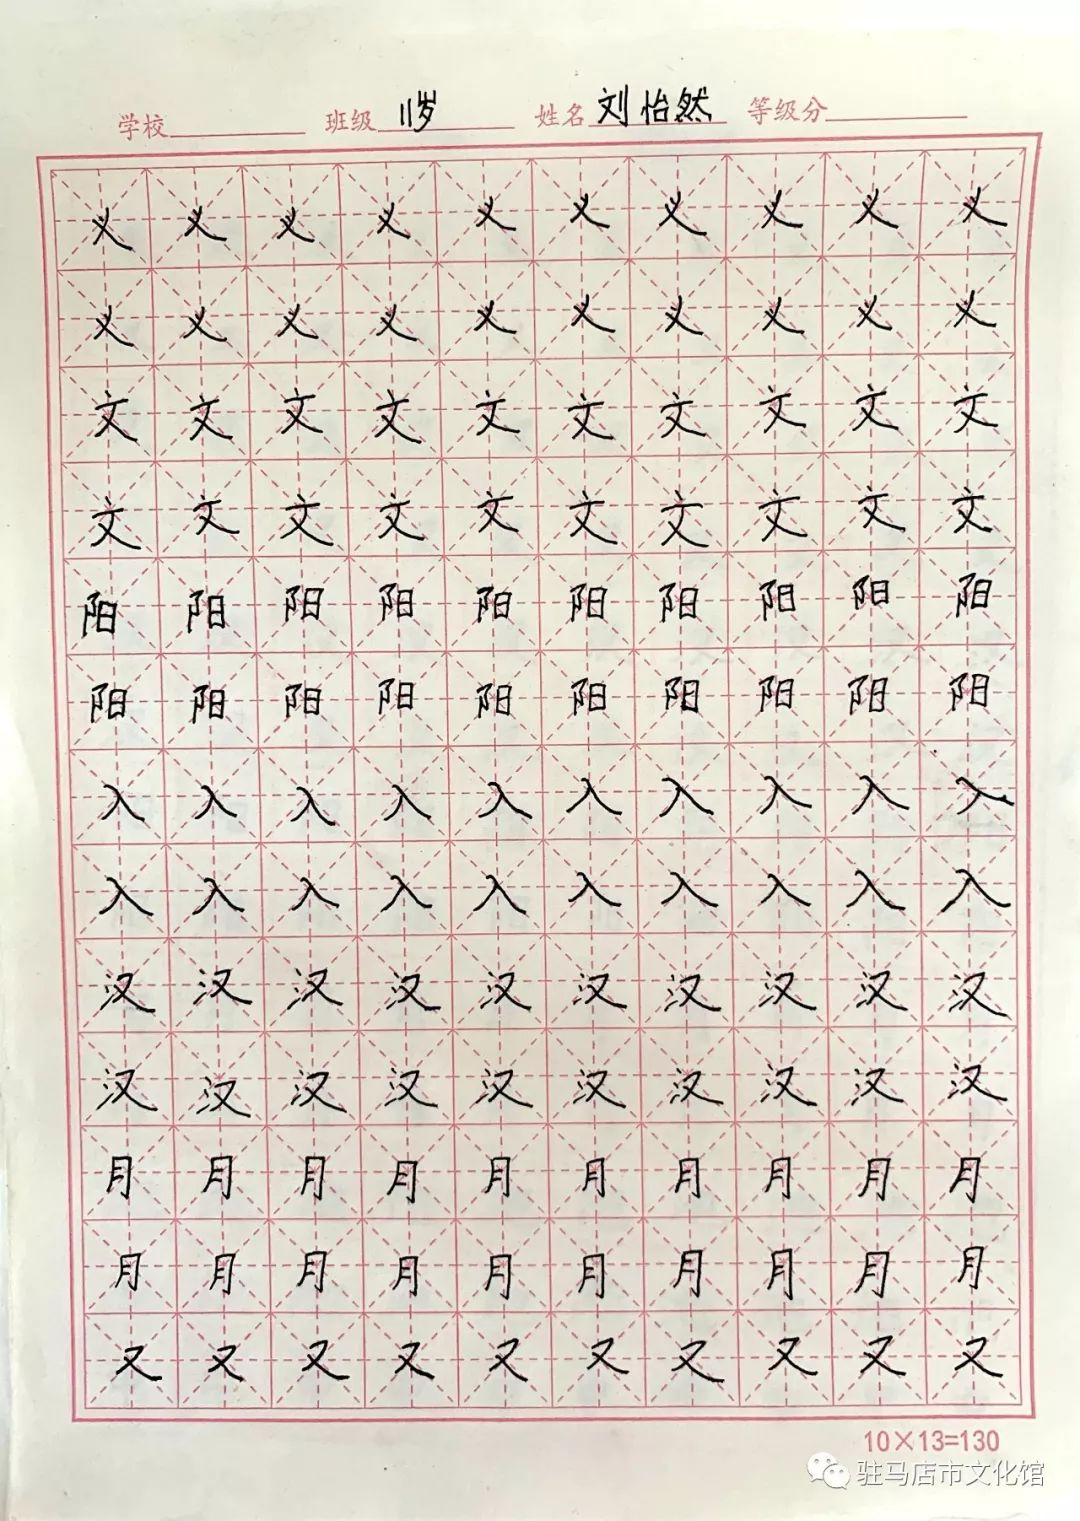 学校 班级 11岁 姓名 刘怡然 等级分
义 义 义 义 义 义 义 义 义 义
义 义 义 义 义 义 义 义 义 义
文 文 文 文 文 文 文 文 文 文
文 文 文 文 文 文 文 文 文 文
阳 阳 阳 阳 阳 阳 阳 阳 阳 阳
阳 阳 阳 阳 阳 阳 阳 阳 阳 阳
入 入 入 入 入 入 入 入 入 入
入 入 入 入 入 入 入 入 入 入
汉 汉 汉 汉 汉 汉 汉 汉 汉 汉
汉 汉 汉 汉 汉 汉 汉 汉 汉 汉
月 月 月 月 月 月 月 月 月 月
月 月 月 月 月 月 月 月 月 月
又 又 又 又 又 又 又 又 又 又
10×13=130
驻马店市文化馆